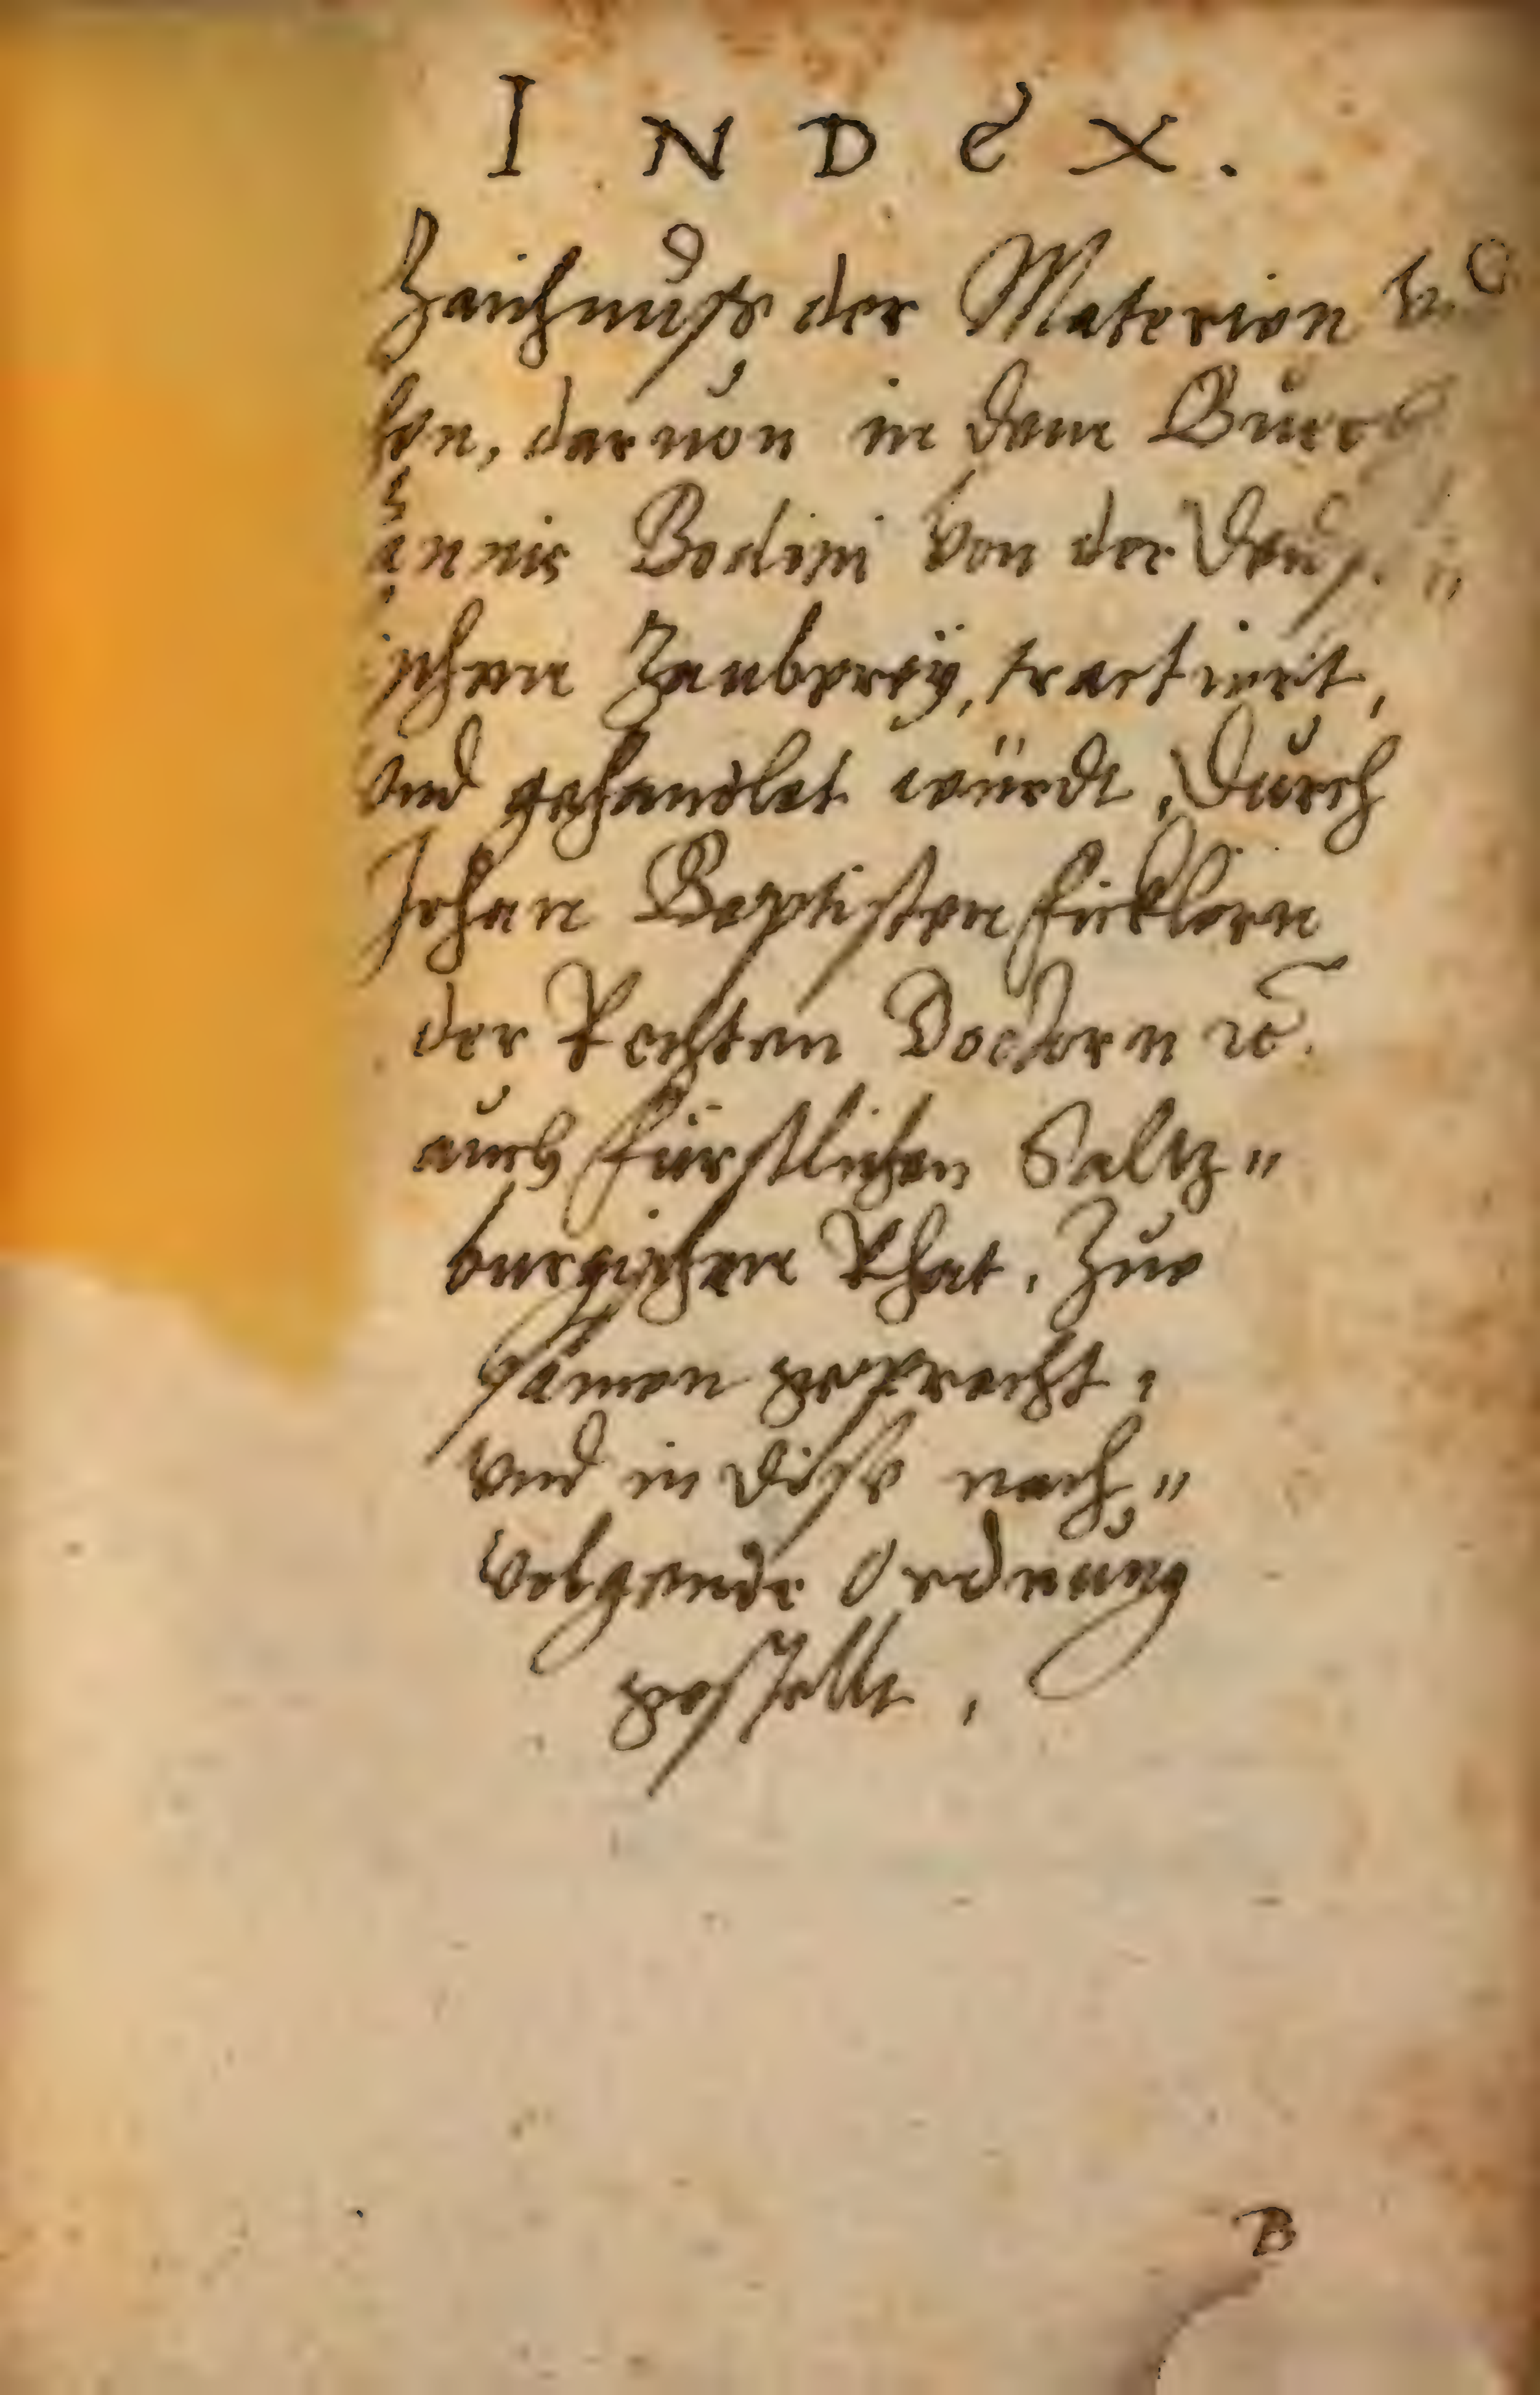 INDEX.
Zaichnuß der Materien
der Materien, daruon in dem Buech
annis Bodini von der
ischen Zauberey, tractiert,
vnd gehandlet würdt, Durch
Johan Baptisten Ficklern
der Rechten Doctorn ꝛc.
auch fürstlichen Saltz„
burgischen Rhat, Zue
samen gepracht,
vnd in dise nach„
volgende Ordnung
gestellt,
B